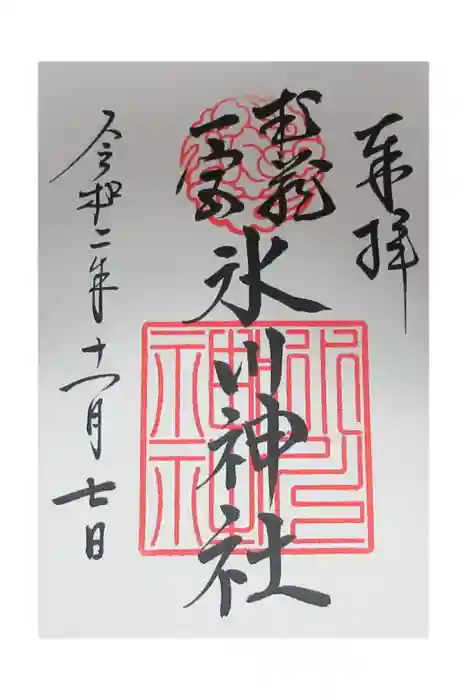 奉拝
武蔵
一宮
氷川神社
氷川
神社
令和二年十一月七日